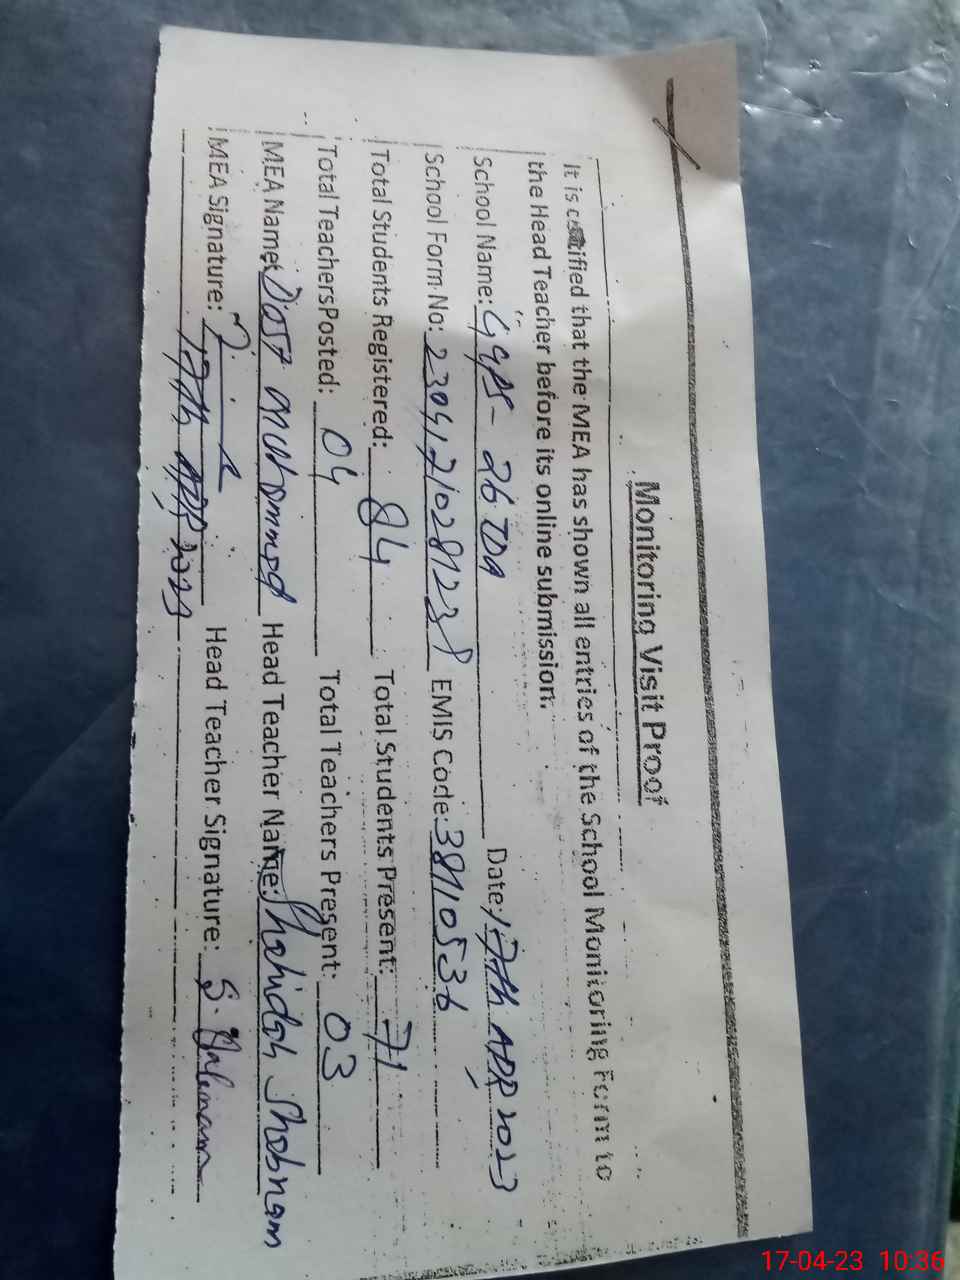 Monitoring Visit Proof
It is certified that the MEA has shown all entries of the School Monitoring Form to
the Head Teacher before its online submission.
School Name: GGPS - 26 TDA Date: 17th APR 2023
School Form No: 23041710281238 EMIS Code: 38110536
Total Students Registered: 84 Total Students Present: 71
Total Teachers Posted: 04 Total Teachers Present: 03
MEA Name: Dost Muhammad Head Teacher Name: Shahidah Shabnam
MEA Signature: Head Teacher Signature: S. Shabnam
17th APR 2023
17-04-23 10:36